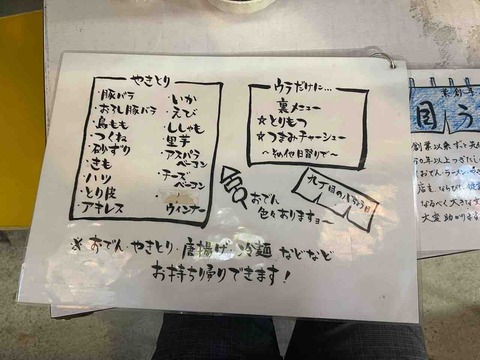 やきとり
・豚バラ
・おろし豚バラ
・鳥もも
・つくね
・砂ずり
・きも
・ハツ
・とり皮
・アキレス
・いか
・えび
・ししゃも
・里芋
・アスパラベーコン
・チーズベーコン
・ウィンナー
ウラだけに…
裏メニュー
☆とりもつ
☆つまみチャーシュー
〜その他日替りで〜
おでん
色々ありますョ〜
九丁目の
※おでん・やきとり・唐揚げ・冷麺 などなど
お持ち帰りできます!
目う
創業以来ずっと
おでん、ラーメン
店主、ならびに
なるべく大きな
大変助かります